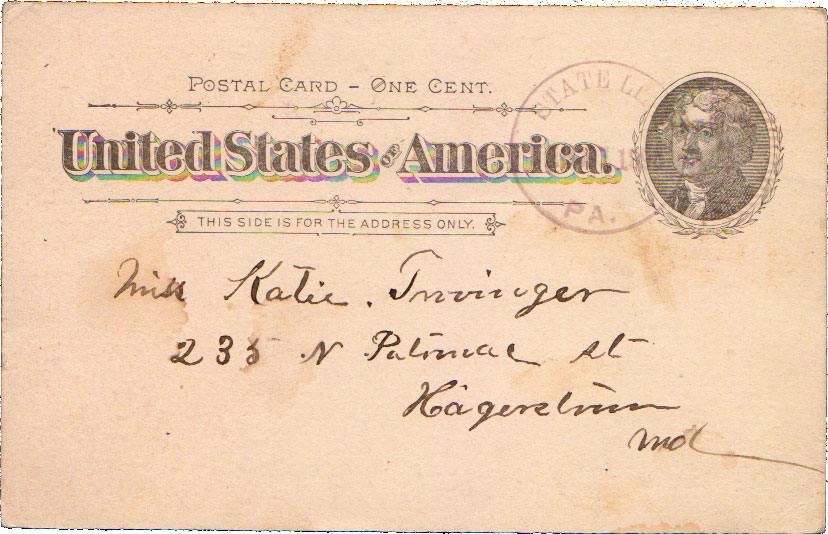 POSTAL CARD - ONE CENT.
United States OF America.
THIS SIDE IS FOR THE ADDRESS ONLY.
STATE
PA.
Miss Katie
235 N Potomac st
Hagerstown
Md